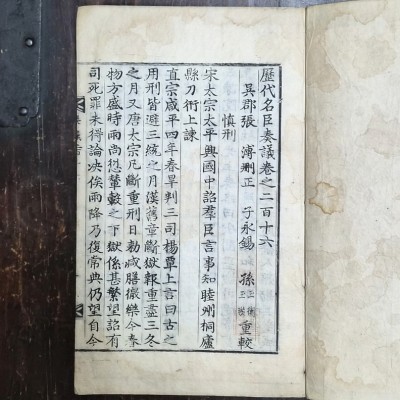 歷代名臣奏議卷之二百十六
吳郡張 溥刪正 子永錫 孫 重較
慎刑
宋太宗太平興國中詔羣臣言事知睦州桐廬
縣刀衎上諫
真宗咸平四年春旱判三司楊覃上言曰古之
用刑皆避三統之月漢舊章斷獄報重盡三冬
之月又唐太宗凡斷重刑日勅減膳徹樂今春
物方盛時雨尚愆輦轂之下獄係甚繁望詔有
司死罪未得論決俟雨降乃復常典仍望自今